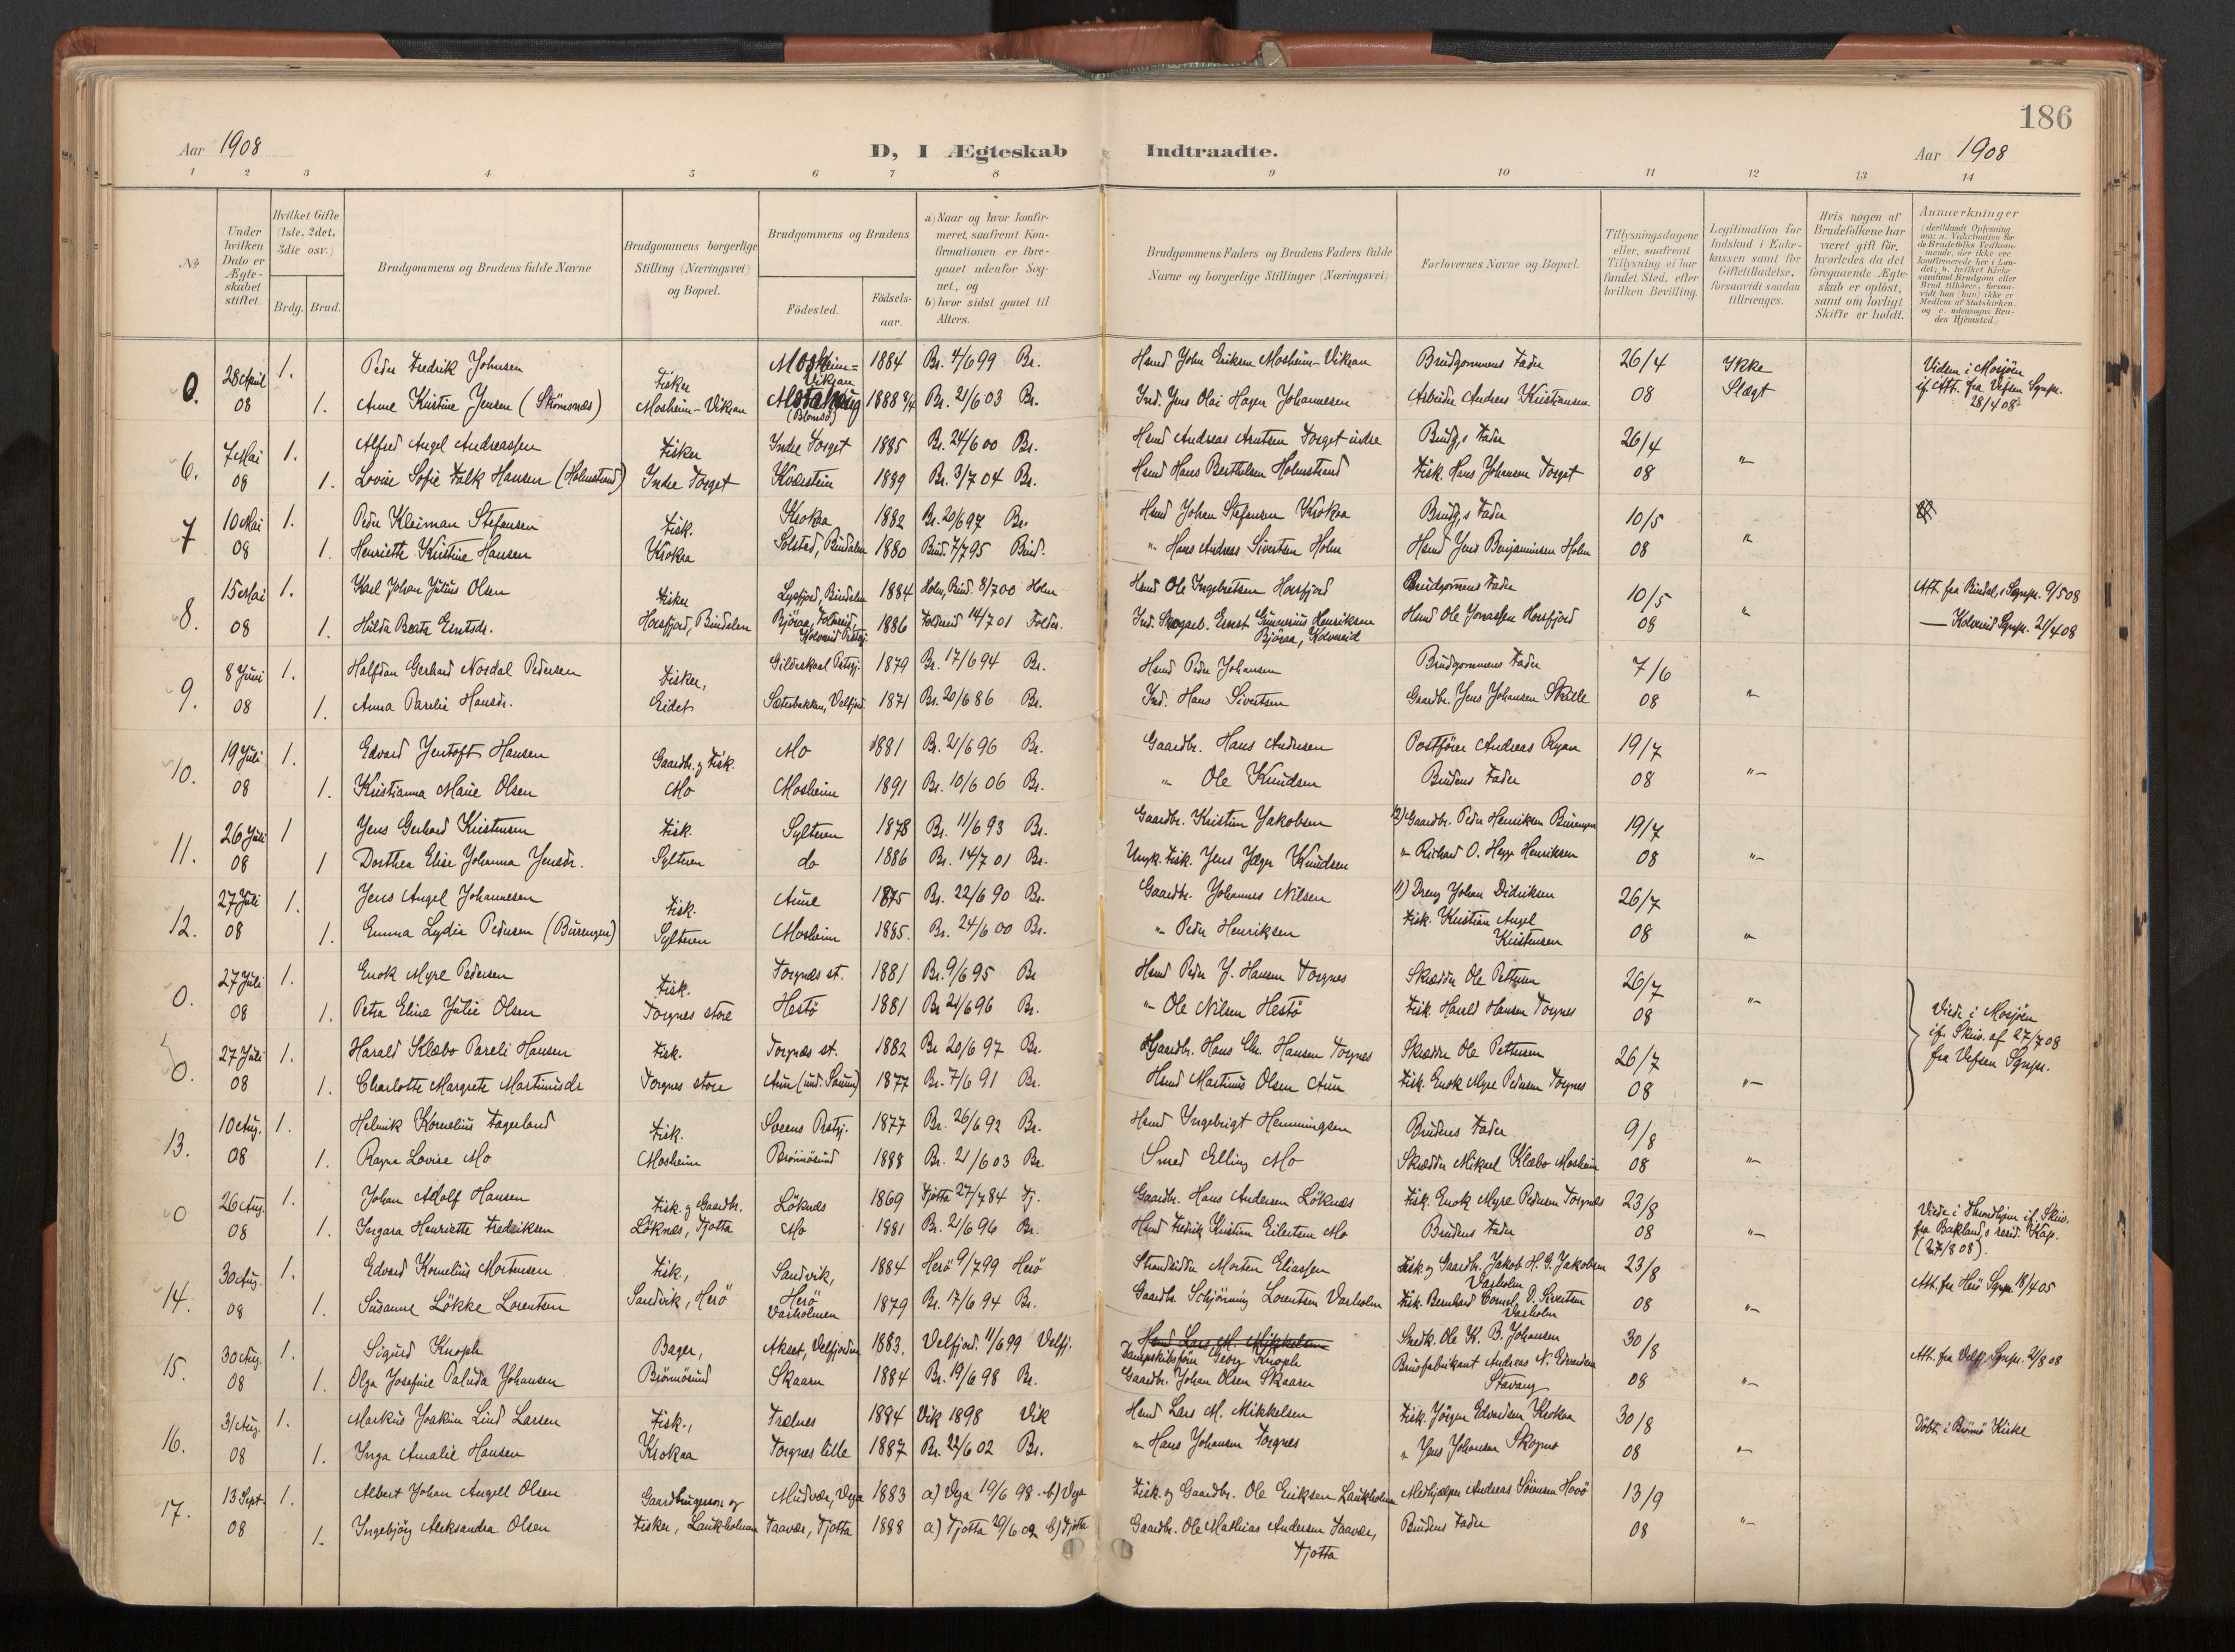 186
Aar 1908
D, I Ægteskab Indtraadte.
Aar 1908
1 2 3 4 5 6 7 8 9 10 11 12 13 14
№
Under hvilken Dato er Ægteskabet stiftet.
Hvilket Gifte (1ste, 2det, 3die osv.)
Brdg. Brud.
Brudgommens og Brudens fulde Navne
Brudgommens borgerlige Stilling (Næringsvei) og Bopæl.
Brudgommens og Brudens
Födested.
Födsels-aar.
a) Naar og hvor konfirmeret, saafremt Konfirmationen er foregaaet udenfor Sognet, og
b) hvor sidst gaaet til Alters.
Brudgommens Faders og Brudens Faders fulde Navne og borgerlige Stillinger (Næringsvei)
Forlovernes Navne og Bopæl.
Tillysningsdagene eller, saafremt Tillysning ei har fundet Sted, efter hvilken Bevilling.
Legitimation for Indskud i Enkekassen samt for Giftetilladelse, forsaavidt saadan tiltrænges.
Hvis nogen af Brudefolkene har været gift för, hvorledes da det foregaaende Ægteskab er oplöst, samt om lovligt Skifte er holdt.
Anmærkninger
0. 28 April 1. Peder Fredrik Johnsen Fisker Mosheim= Vikran 1884 Br. 4/6 99 Br. Hsmd John Eriksen Mosheim-Vikran Brudgommens Fader 26/4 Ikke Viden i Mosjøen
08 1. Anne Kristine Jensen (Strömsnæs) Mosheim-Vikran Alstahaug (Blomsö) 1888 8/4 Br. 21/6 03 Br. Ind. Jens Olai Hagen Johannesen Arbeider Andreas Kristiansen 08 Slægt if. Att. fra Vefsen Sgnpr. 28/4 08
6. 7 Mai 1. Alfred Angel Andreassen Fisker Indre Torget 1885 Br. 24/6 00 Br. Hsmd Andreas Arntsen Torget indre Brudg,s Fader 26/4
08 1. Lovise Sofie Falk Hansen (Holmstrand) Indre Torget Kværstein 1889 Br. 3/7 04 Br. Hsmd Hans Berthelsen Holmstrand Fisk. Hans Johansen Torget 08 "
7 10 Mai 1. Peder Kleiman Stefansen Fisk. Krokaa 1882 Br. 20/6 97 Br. Hsmd Johan Stefansen Krokaa Brudg,s Fader 10/5
08 1. Henriette Kristine Hansen Krokaa Solstad, Bindalen 1880 Bind. 7/7 95 Bind. " Hans Andreas Sivertsen Holm Hsmd Jens Benjaminsen Holm 08 "
8. 15 Mai 1. Karl Johan Julius Olsen Fisker Lysfjord, Bindalen 1884 Holm, Bind. 8/7 00 Holm Hsmd Ole Ingebretsen Horsfjord Brudgommens Fader 10/5 Att. fra Bindal,s Sgnpr. 9/5 08
08 1. Hilda Beate Erntsdr. Horsfjord, Bindalen Björaa, Foldereid, Kolvereid Prstgj. 1886 Foldereid 14/7 01 Folder. Ind. Skogarb. Ernst Gunerius Henriksen Björaa, Kolvereid Hsmd Ole Jonassen Horsfjord 08 " — Kolvereid Sgnpr. 21/4 08
9. 8 Juni 1. Halfdan Gerhard Nordal Pedersen Fisker, Gildeskaal Prstgj. 1879 Br. 17/6 94 Br. Hsmd Peder Johansen Brudgommens Fader 7/6
08 1. Anna Parelie Hansdr. Eidet Sæterbakken, Velfjord 1871 Br. 20/6 86 Br. Ind. Hans Sivertsen Gaardbr. Jens Johansen Skille 08 "
10. 19 Juli 1. Edvard Jentoft Hansen Gaardbr. og Fisk. Mo 1881 Br. 21/6 96 Br. Gaardbr. Hans Andersen Postförer Andreas Ryan 19/7
08 1. Kristianna Marie Olsen Mo Mosheim 1891 Br. 10/6 06 Br. " Ole Knudsen Brudens Fader 08 "
11. 26 Juli 1 Jens Gerhard Kristensen Fisk. Sylteren 1878 Br. 11/6 93 Br. Gaardbr. Kristen Jakobsen 12) Gaardbr. Peder Henriksen Burengen 19/7
08 1 Dorthea Elise Johanna Jensdr. Sylteren do 1886 Br. 14/7 01 Br. Ungk. Fisk. Jens Jæger Knudsen " Richard O. Hepp Henriksen 08 "
12. 27 Juli 1. Jens Angel Johannesen Fisk. Aune 1875 Br. 22/6 90 Br. Gaardbr. Johannes Nilsen 11) Dreng Johan Didriksen 26/7
08 1. Emma Lydia Pedersen (Burengen) Sylteren Mosheim 1885. Br. 24/6 00 Br. " Peder Henriksen Fisk. Kristian Angel Kristensen 08 "
0. 27 Juli 1. Enok Myre Pedersen Fisk. Torgnes st. 1881 Br. 9/6 95 Br Hsmd Peder J. Hansen Torgnes Skrædder Ole Pettersen 26/7
08 1. Petra Eline Julie Olsen Torgnes store Hestö 1881 Br 21/6 96 Br. " Ole Nilsen Hestö Fisk. Harald Hansen Torgnes 08 " Viede i Mosjöen
0. 27 Juli 1. Harald Klæbo Pareli Hansen Fisk. Torgnæs st. 1882 Br 20/6 97 Br. Gaardbr. Hans Chr. Hansen Torgnes Skrædder Ole Pettersen 26/7 if. Skriv. af 27/7 08
08 1. Charlotte Margrete Martinusdr Torgnes store Aun (ind. Saund) 1877 Br. 7/6 91 Br. Hsmd Martinus Olsen Aun Fisk. Enok Myre Pedersen Torgnes 08 " fra Vefsen Sgnpr.
13. 10 Aug. 1. Helmik Kornelius Fagerland Fisk. Sörens Prstgj. 1877 Br. 26/6 92 Br. Hsmd Ingebrigt Hemmingsen Brudens Fader 9/8
08 1. Ragna Lovise Mo Mosheim Brönnösund 1888 Br. 21/6 03 Br. Smed Elling Mo Skrædder Mikael Klæbo Mosheim 08 "
0 26 Aug. 1. Johan Adolf Hansen Fisk. og Gaardbr. Löknæs 1869 Tjötta 27/7 84 Tj. Gaardbr. Hans Andersen Löknæs Fisk. Enok Myre Pedersen Torgnæs 23/8 Viede i Throndhjem if. Skriv.
08 1. Ingara Henriette Fredriksen Löknæs, Tjötta Mo 1881 Br. 21/6 96 Br. Hsmd Fredrik Kristian Eilertsen Mo Brudens Fader 08 " fra Bakland,s resid. Kap. (27/8 08).
14. 30 Aug. 1. Edvard Kornelius Mortensen Fisk., Sandvik, Herö 1884 Herö 9/7 99 Herö Strandsidder Morten Eliassen Fisk. og Gaardbr. Jakob H. G. Jakobsen Varholm 23/8 Att. fra Herö Sgnpr. 18/4 05
08 1. Susanne Lökke Lorentsen Sandvik, Herö Varholmen 1879 Br. 17/6 94 Br. Gaardbr. Schjönning Lorentsen Varholm Fisk. Bernhard Cornel. D. Sivertsen Varholm 08 "
15. 30 Aug. 1. Sigurd Knoph Bager, Akset, Velfjorden 1883. Velfjord. 11/6 99 Velfj. Hsmd Lars M. Mikkelsen Dampskibsförer Georg Knoph Snedk. Ole K. B. Johansen 30/8 Att. fra Velfj. Sgnpr. 21/8 08
08 1. Olga Josefine Paluda Johansen Brönnösund Skaaren 1884 Br. 19/6 98 Br. Gaardbr. Johan Olsen Skaaren Brusfabrikant Andreas N. Edvardsen Stavang 08 "
16. 31 Aug. 1. Markus Joakim Lind Larsen Fisk., Trælnes 1884 Vik 1898 Vik Hsmd Lars M. Mikkelsen Fisk. Jörgen Edvardsen Krokaa 30/8 Döbt i Brönnö Kirke
08 1. Inga Amalie Hansen Krokaa Torgnes lille 1887 Br. 22/6 02 Br. " Hans Johansen Torgnes " Jens Johansen Skognes 08 "
17. 13 Sept. 1. Albert Johan Angell Olsen Gaardbrugersøn og Mudvær, Vega 1883 a) Vega 19/6 98. b) Vega Fisk. og Gaardbr. Ole Eriksen Laukholmen Medhjælper Andreas Sörensen Havö 13/9
08 1. Ingebjörg Aleksandra Olsen Fisker, Laukholmen Taavær, Tjøtta 1888 a) Tjøtta 29/6 02 b) Tjøtta Gaardbr. Ole Mathias Andersen Taavær, Tjøtta Brudens Fader 08 "